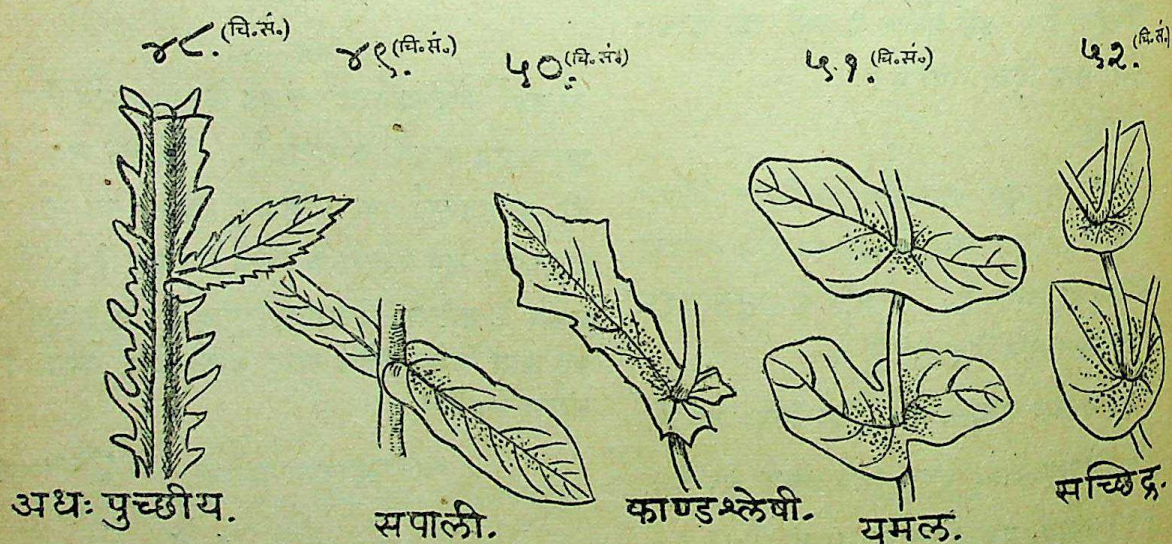 ४८. (चि॰सं॰)
४९. (चि॰सं॰)
५०. (चि॰सं॰)
५१. (चि॰सं॰)
५२. (चि॰सं॰)
अधः पुच्छीय.
सपाली.
काण्डश्लेषी.
यमल.
सच्छिद्र.